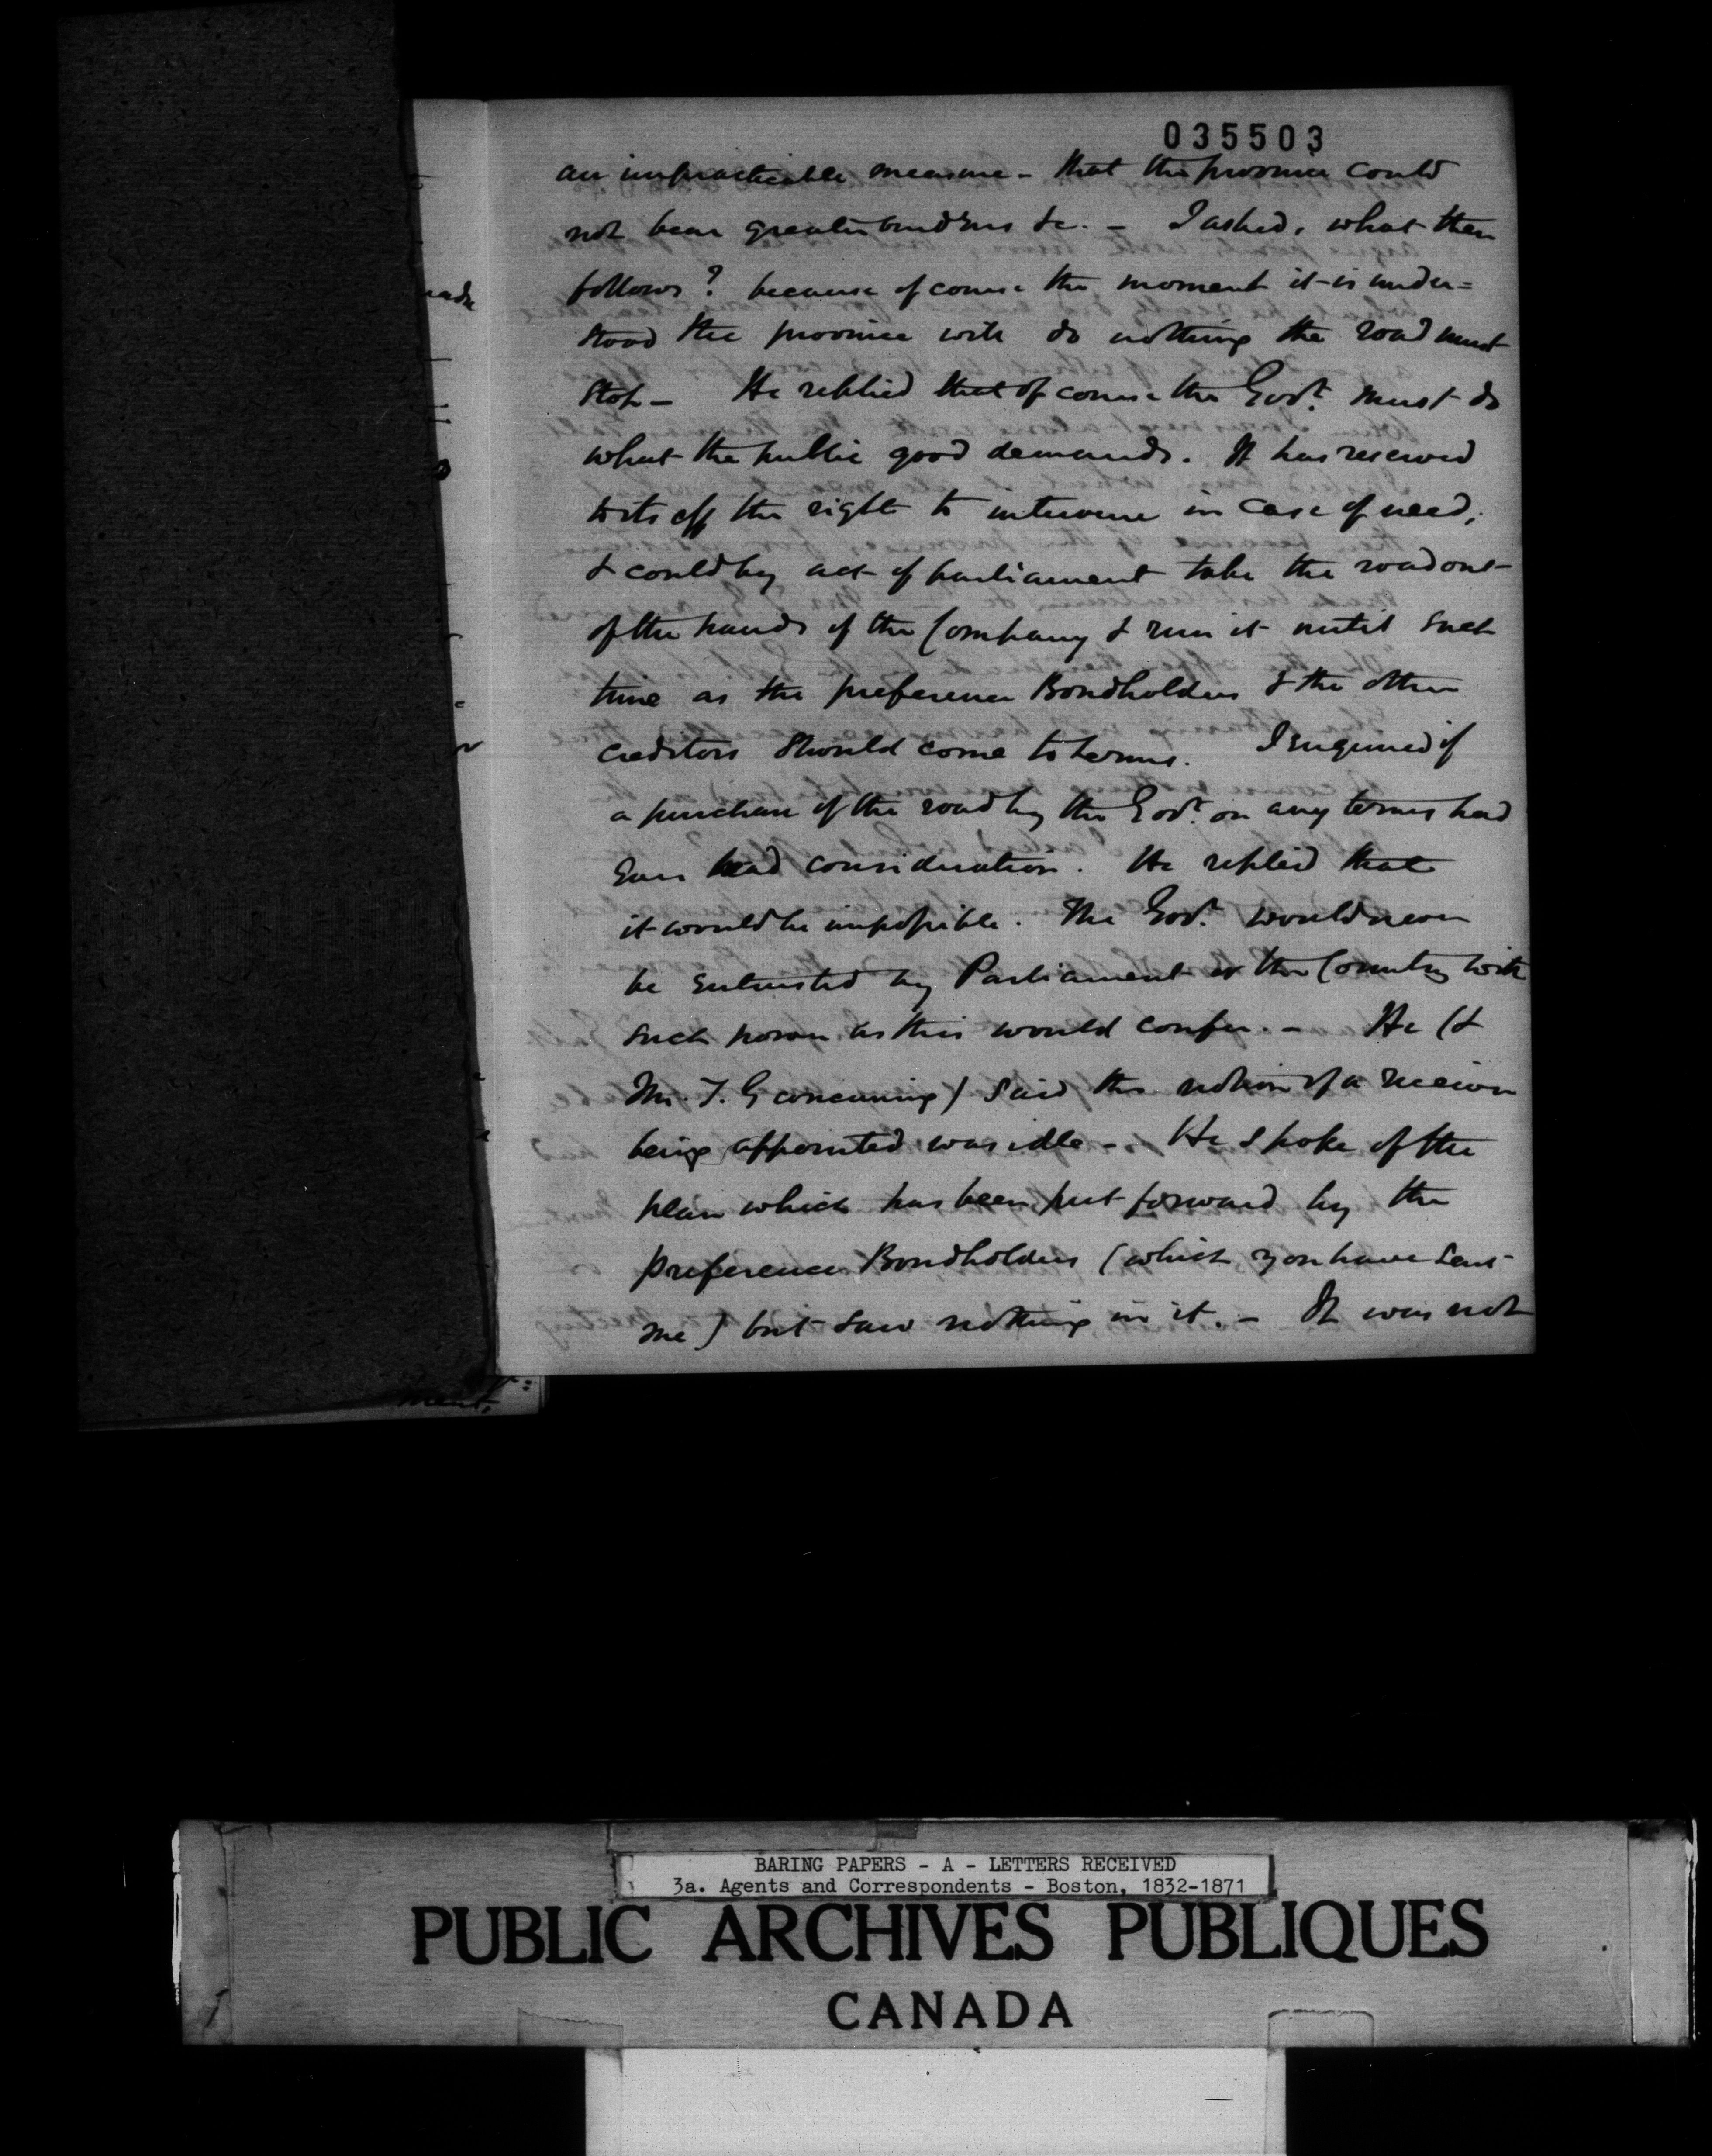 035503
an impracticable measure - that the province could
not bear greater burdens &c. - I asked, what then
follows? because of course the moment it is under=
stood the province will do nothing the road must
stop - He replied that of course the Govt. must do
what the public good demands. It has reserved
to itself the right to intervene in case of need,
& could by act of parliament take the road out
of the hands of the Company & run it until such
time as the preference Bondholders & the other
creditors should come to terms. I enquired if
a purchase of the road by the Govt. on any terms had
ever had consideration. He replied that
it would be impossible. The Govt. would never
be entrusted by Parliament or the Country with
such power as this would confer. - He (&
Mr. T. G concurring) said the notion of a receiver
being appointed was idle - He spoke of the
plan which has been put forward by the
preference Bondholders (which you have sent
me) but saw nothing in it. - It was not
ment,
BARING PAPERS - A - LETTERS RECEIVED
3a. Agents and Correspondents - Boston, 1832-1871
PUBLIC ARCHIVES PUBLIQUES
CANADA